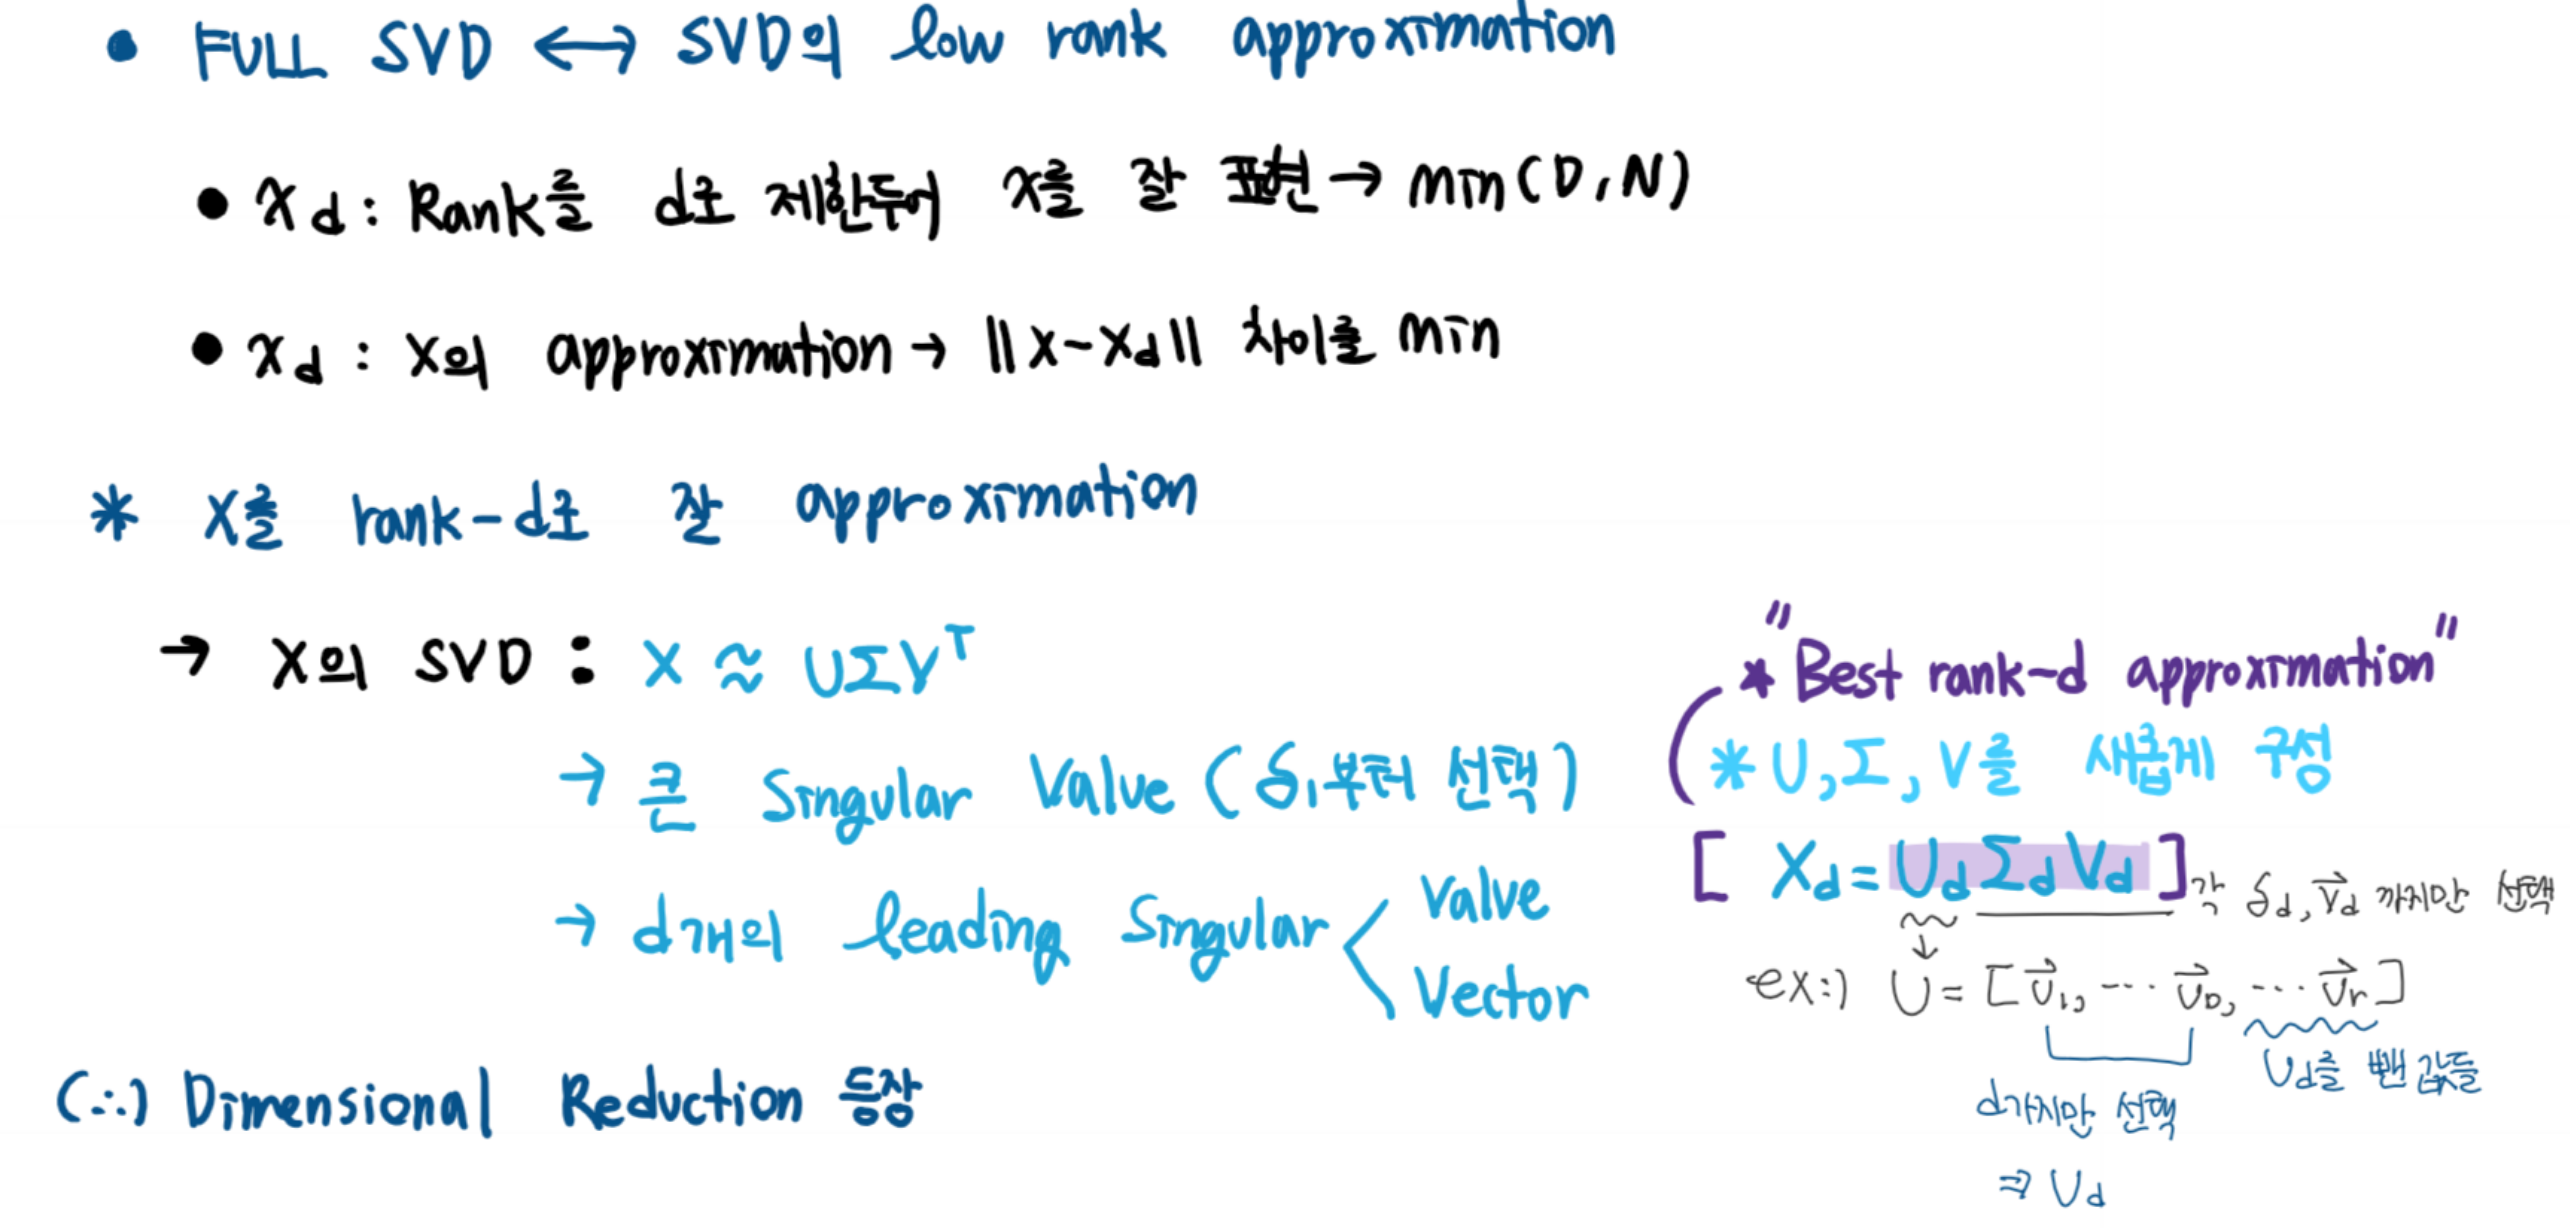 • FULL SVD ↔ SVD의 low rank approximation
• x_d : Rank를 d로 제한두어 x를 잘 표현 → min(D, N)
• x_d : X의 approximation → ||X-X_d|| 차이를 min
* X를 rank-d로 잘 approximation
→ X의 SVD : X ≈ UΣV^T
→ 큰 Singular Value (δ₁부터 선택)
→ d개의 leading Singular < Value
Vector
(∴) Dimensional Reduction 등장
* "Best rank-d approximation"
* U, Σ, V를 새롭게 구성
[ X_d = U_d Σ_d V_d ] 각 δ_d, v⃗_d 까지만 선택
↓
ex:) U = [u⃗₁, ... u⃗_D, ... u⃗_r]
d가지만 선택
⇒ U_d
U_d를 뺀 값들